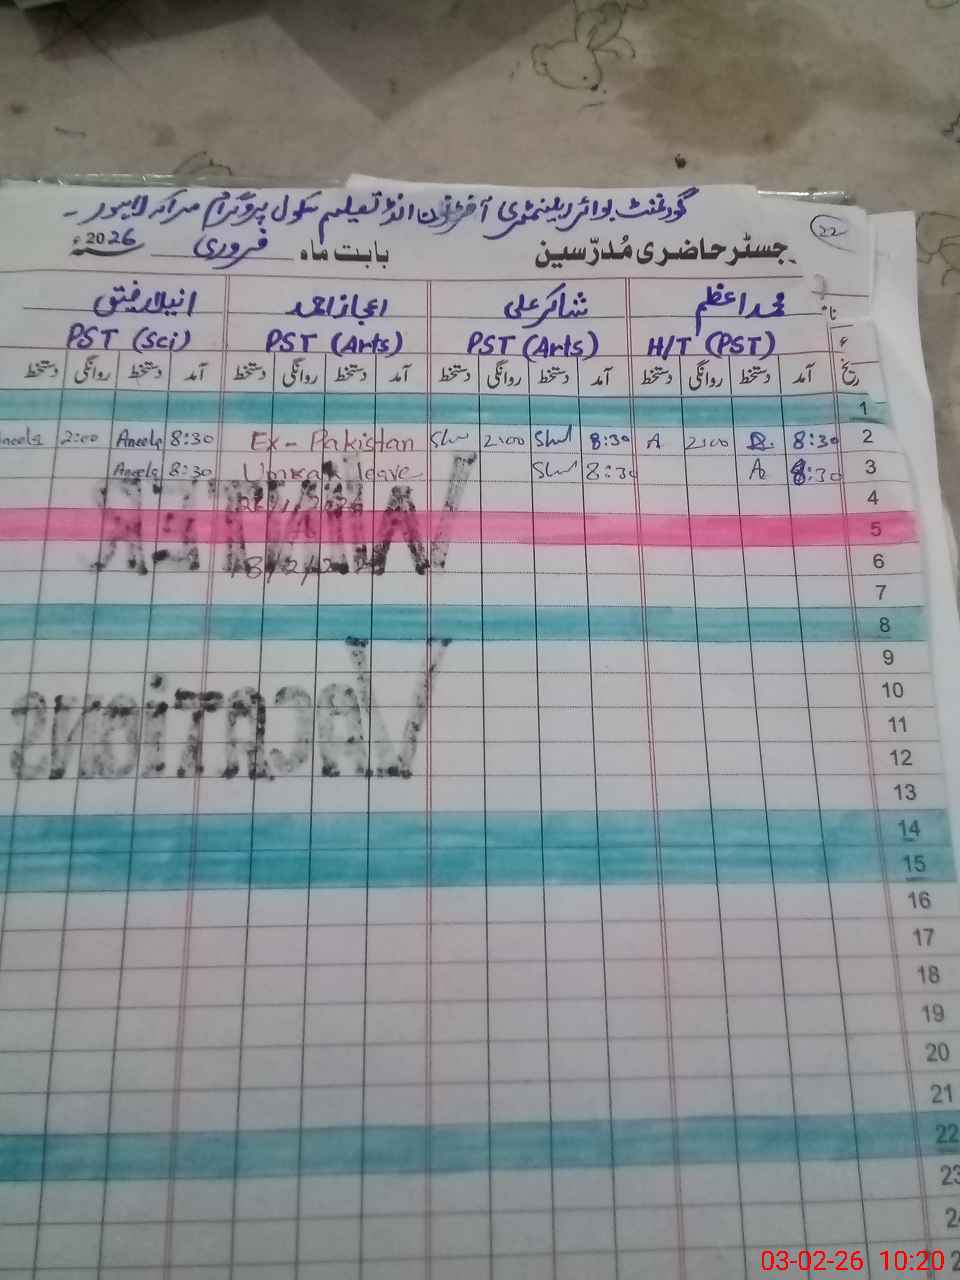 22
گورنمنٹ بوائز ایلیمنٹری آفٹرنون انڈ تعلیم سکول پروگرام مراکہ لاہور۔
رجسٹر حاضری مُدرّسین بابت ماہ فروری 2026ء
محمد اعظم شاکر علی اعجاز احمد انیلا رفیق
H/T (PST) PST (Arts) PST (Arts) PST (Sci)
تاریخ آمد دستخط روانگی دستخط آمد دستخط روانگی دستخط آمد دستخط روانگی دستخط آمد دستخط روانگی دستخط
1
2 8:30 2:00 A 8:30 2:00 Ex-Pakistan 8:30 Aneela 2:00 Aneela
3 8:30 8:30 leave 8:30 Aneela
4
5
6
7
8
9
10
11
12
13
14
15
16
17
18
19
20
21
22
23
WINTER
Vacations
03-02-26 10:20